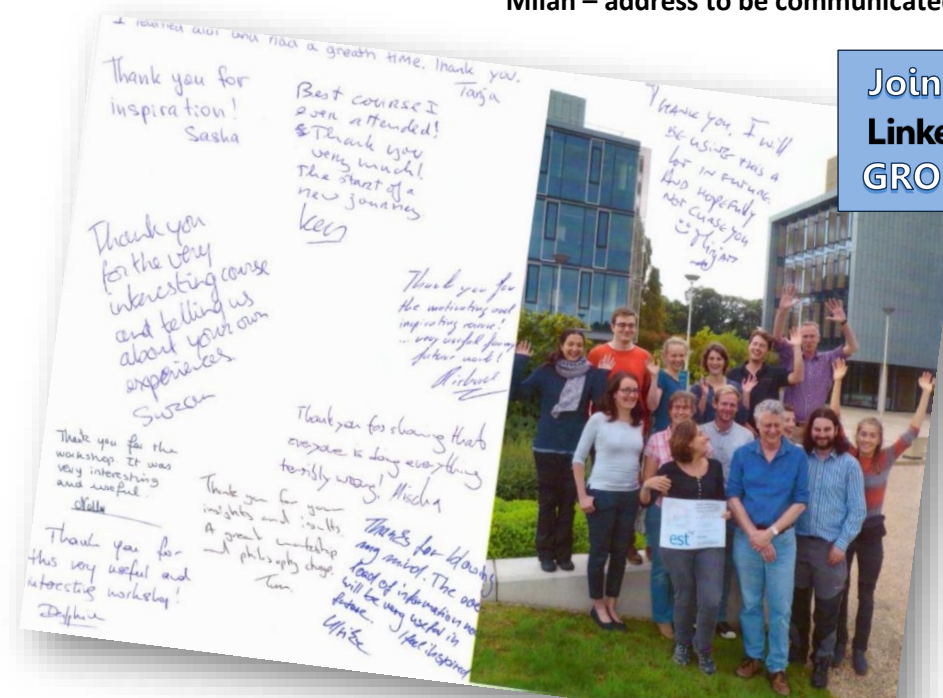 Milan – address to be communicated
Join
Linke
GRO
I learned alot and had a greath time. Thank you.
Tanja
Thank you for
inspiration!
Sasha
Best course I
ever attended!
Thank you
very much!
The start of a
new journey
Ken
THANK YOU, I WILL
BE USING THIS A
LOT IN FUTURE
AND HOPEFULLY
NOT CURSE YOU
Thank you
for the very
interesting course
and telling us
about your own
experiences
Suzan
Thank you for
the motivating and
inspirating course!
... very useful for my
future work!
Thank you for showing that
everyone is doing everything
terribly wrong! Mischa
Thank you for the
workshop. It was
very interesting
and useful.
Thank you for your
insights and
A great workshop
and philosophy change.
Tim
Thanks for blowing
my mind. The
load of information
will be very useful in
future. I feel inspired
Ulrike
Thank you for
this very useful and
interesting workshop!
Delphine
est